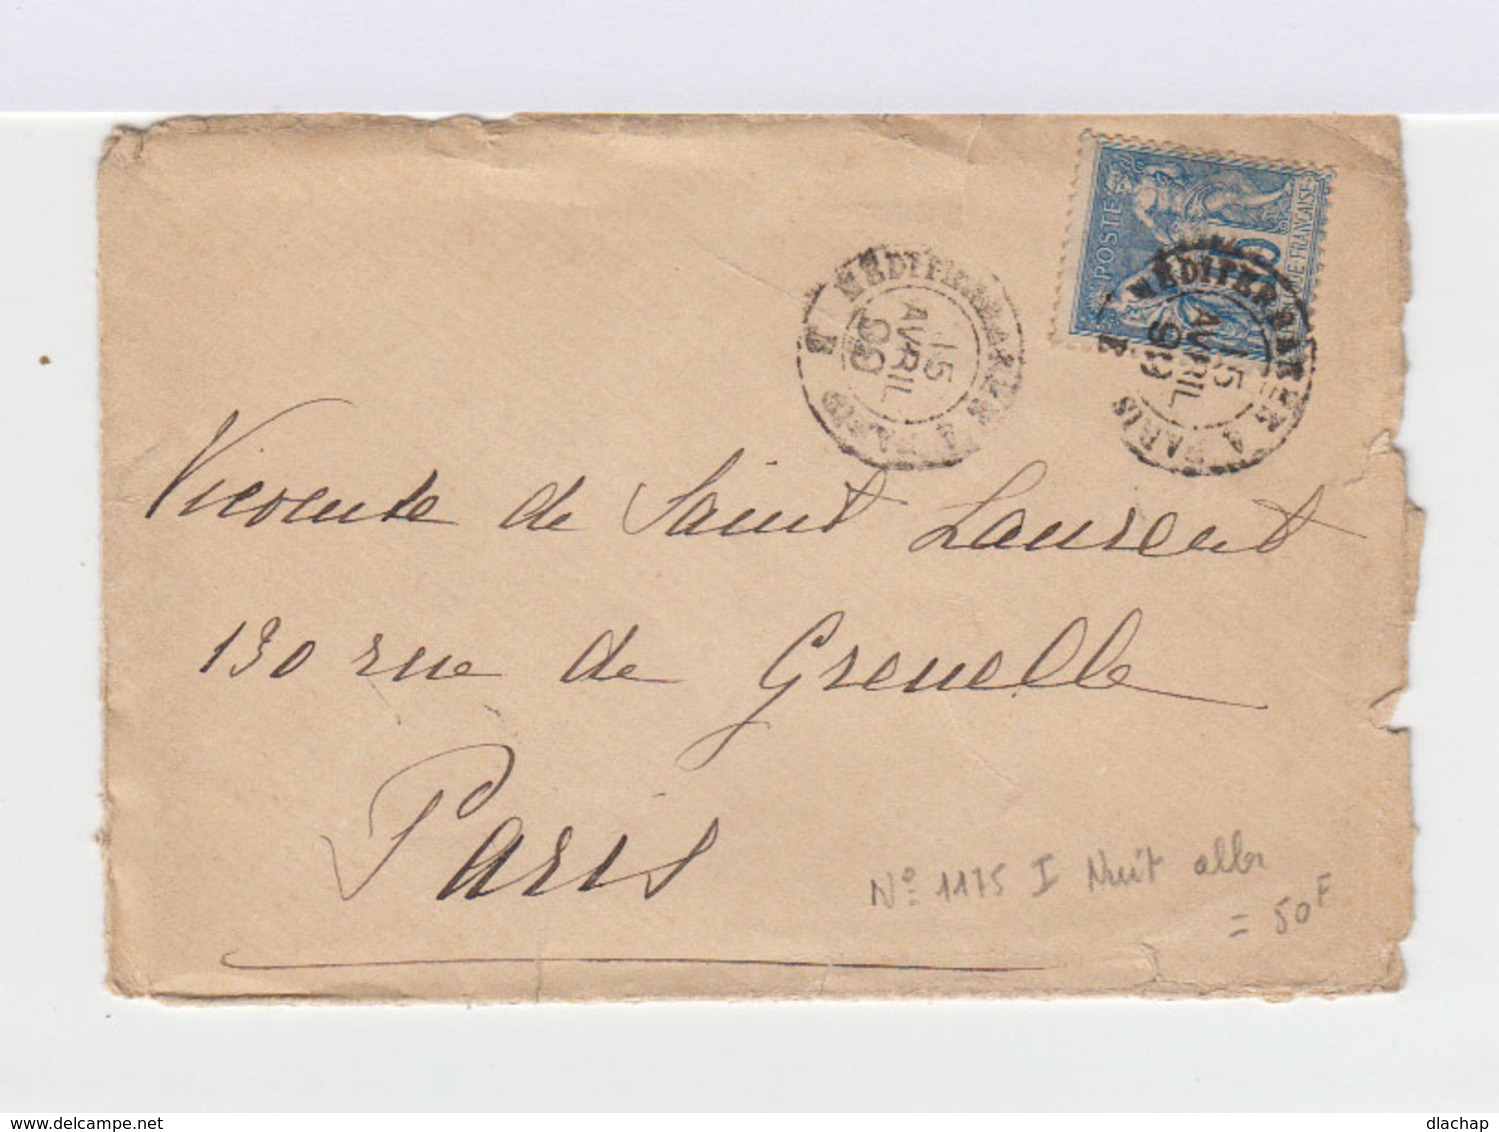 POSTES
REPUBLIQUE FRANÇAISE
MÉDITERRANÉE À PARIS
E
15
AVRIL
99
MÉDITERRANÉE À PARIS
E
15
AVRIL
99
Vicomte de Saint Laurent
130 rue de Grenelle
Paris
N° 1175 I Nuit
= 50F
www.delcampe.net
dlachap